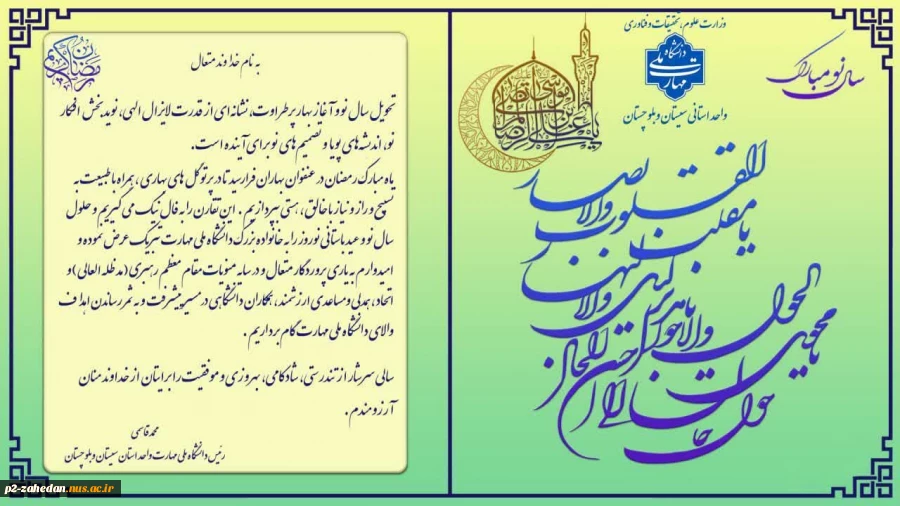 وزارت علوم، تحقیقات و فناوری
دانشگاه ملی مهارت
واحد استانی سیستان و بلوچستان
سال نو مبارک
یا مقلب القلوب والابصار
یا مدبر اللیل والنهار
یا محول الحول والاحوال
حول حالنا الی احسن الحال
رمضان کریم
به نام خداوند متعال
تحویل سال نو و آغاز بهار پرطراوت، نشانه ای از قدرت لایزال الهی، نوید بخش افکار
نو، اندیشه های پویا و تصمیم های نو برای آینده است.
ماه مبارک رمضان در عنفوان بهاران فرا رسید تا در پرتو گل های بهاری، همراه با طبیعت به
تسبیح و راز و نیاز با خالق هستی بپردازیم. این تقارن را به فال نیک می گیریم و حلول
سال نو و عید باستانی نوروز را به خانواده بزرگ دانشگاه ملی مهارت تبریک عرض نموده و
امیدوارم به یاری پروردگار متعال و در سایه منویات مقام معظم رهبری (مدظله العالی) و
اتحاد، همدلی و مساعدی ارزشمند، همکاران دانشگاهی در مسیر پیشرفت و به ثمر رساندن اهداف
والای دانشگاه ملی مهارت گام برداریم.
سالی سرشار از تندرستی، شادکامی، بهروزی و موفقیت را برایتان از خداوند منان
آرزومندم.
محمد قاسمی
رئیس دانشگاه ملی مهارت واحد استان سیستان و بلوچستان
p2-zahedan.nus.ac.ir